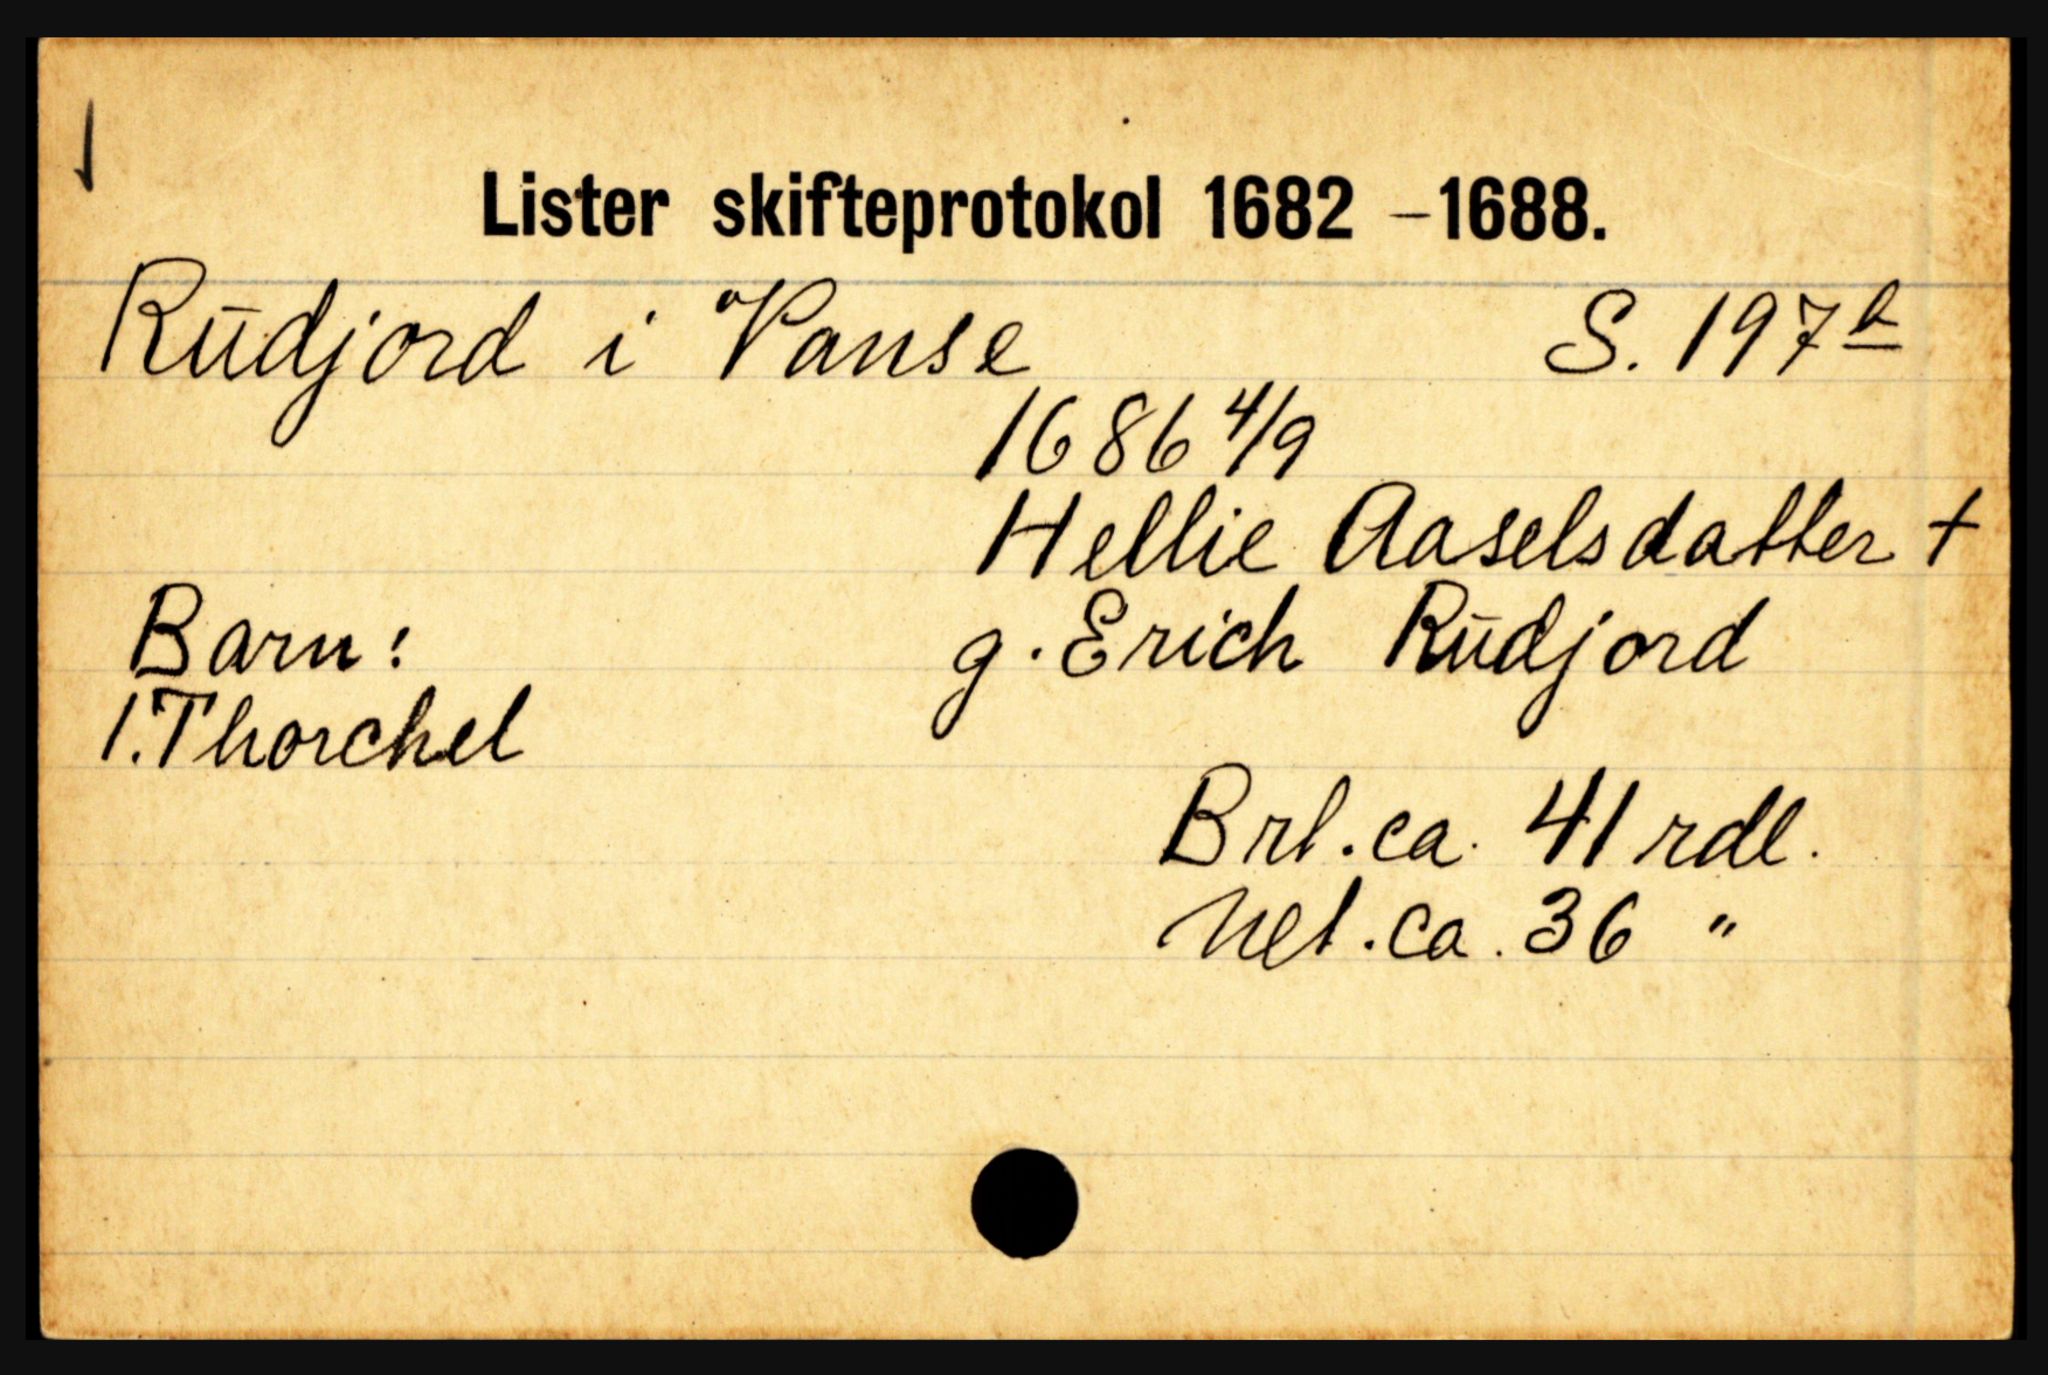 Lister skifteprotokol 1682 – 1688.
Rūdjord i Vanse S. 197b
1686 4/9
Hellie Aaselsdatter +
Barn: g. Erich Rūdjord
1. Thorchel
Brt. ca. 41 rdl.
Net. ca. 36 "